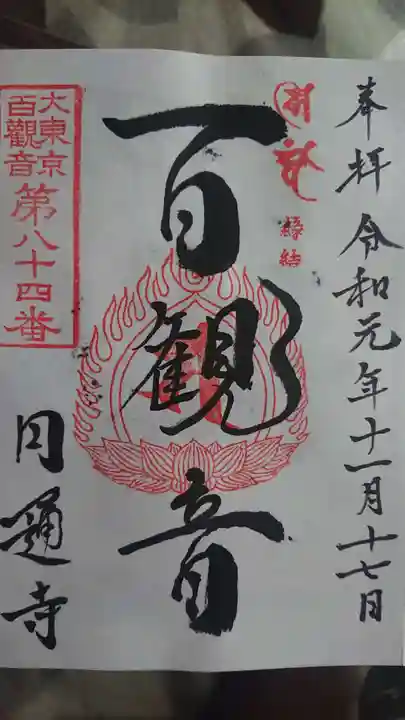 奉拝 令和元年十一月十七日
縁結
百観音
大東京
百觀音
第八十四番
円通寺